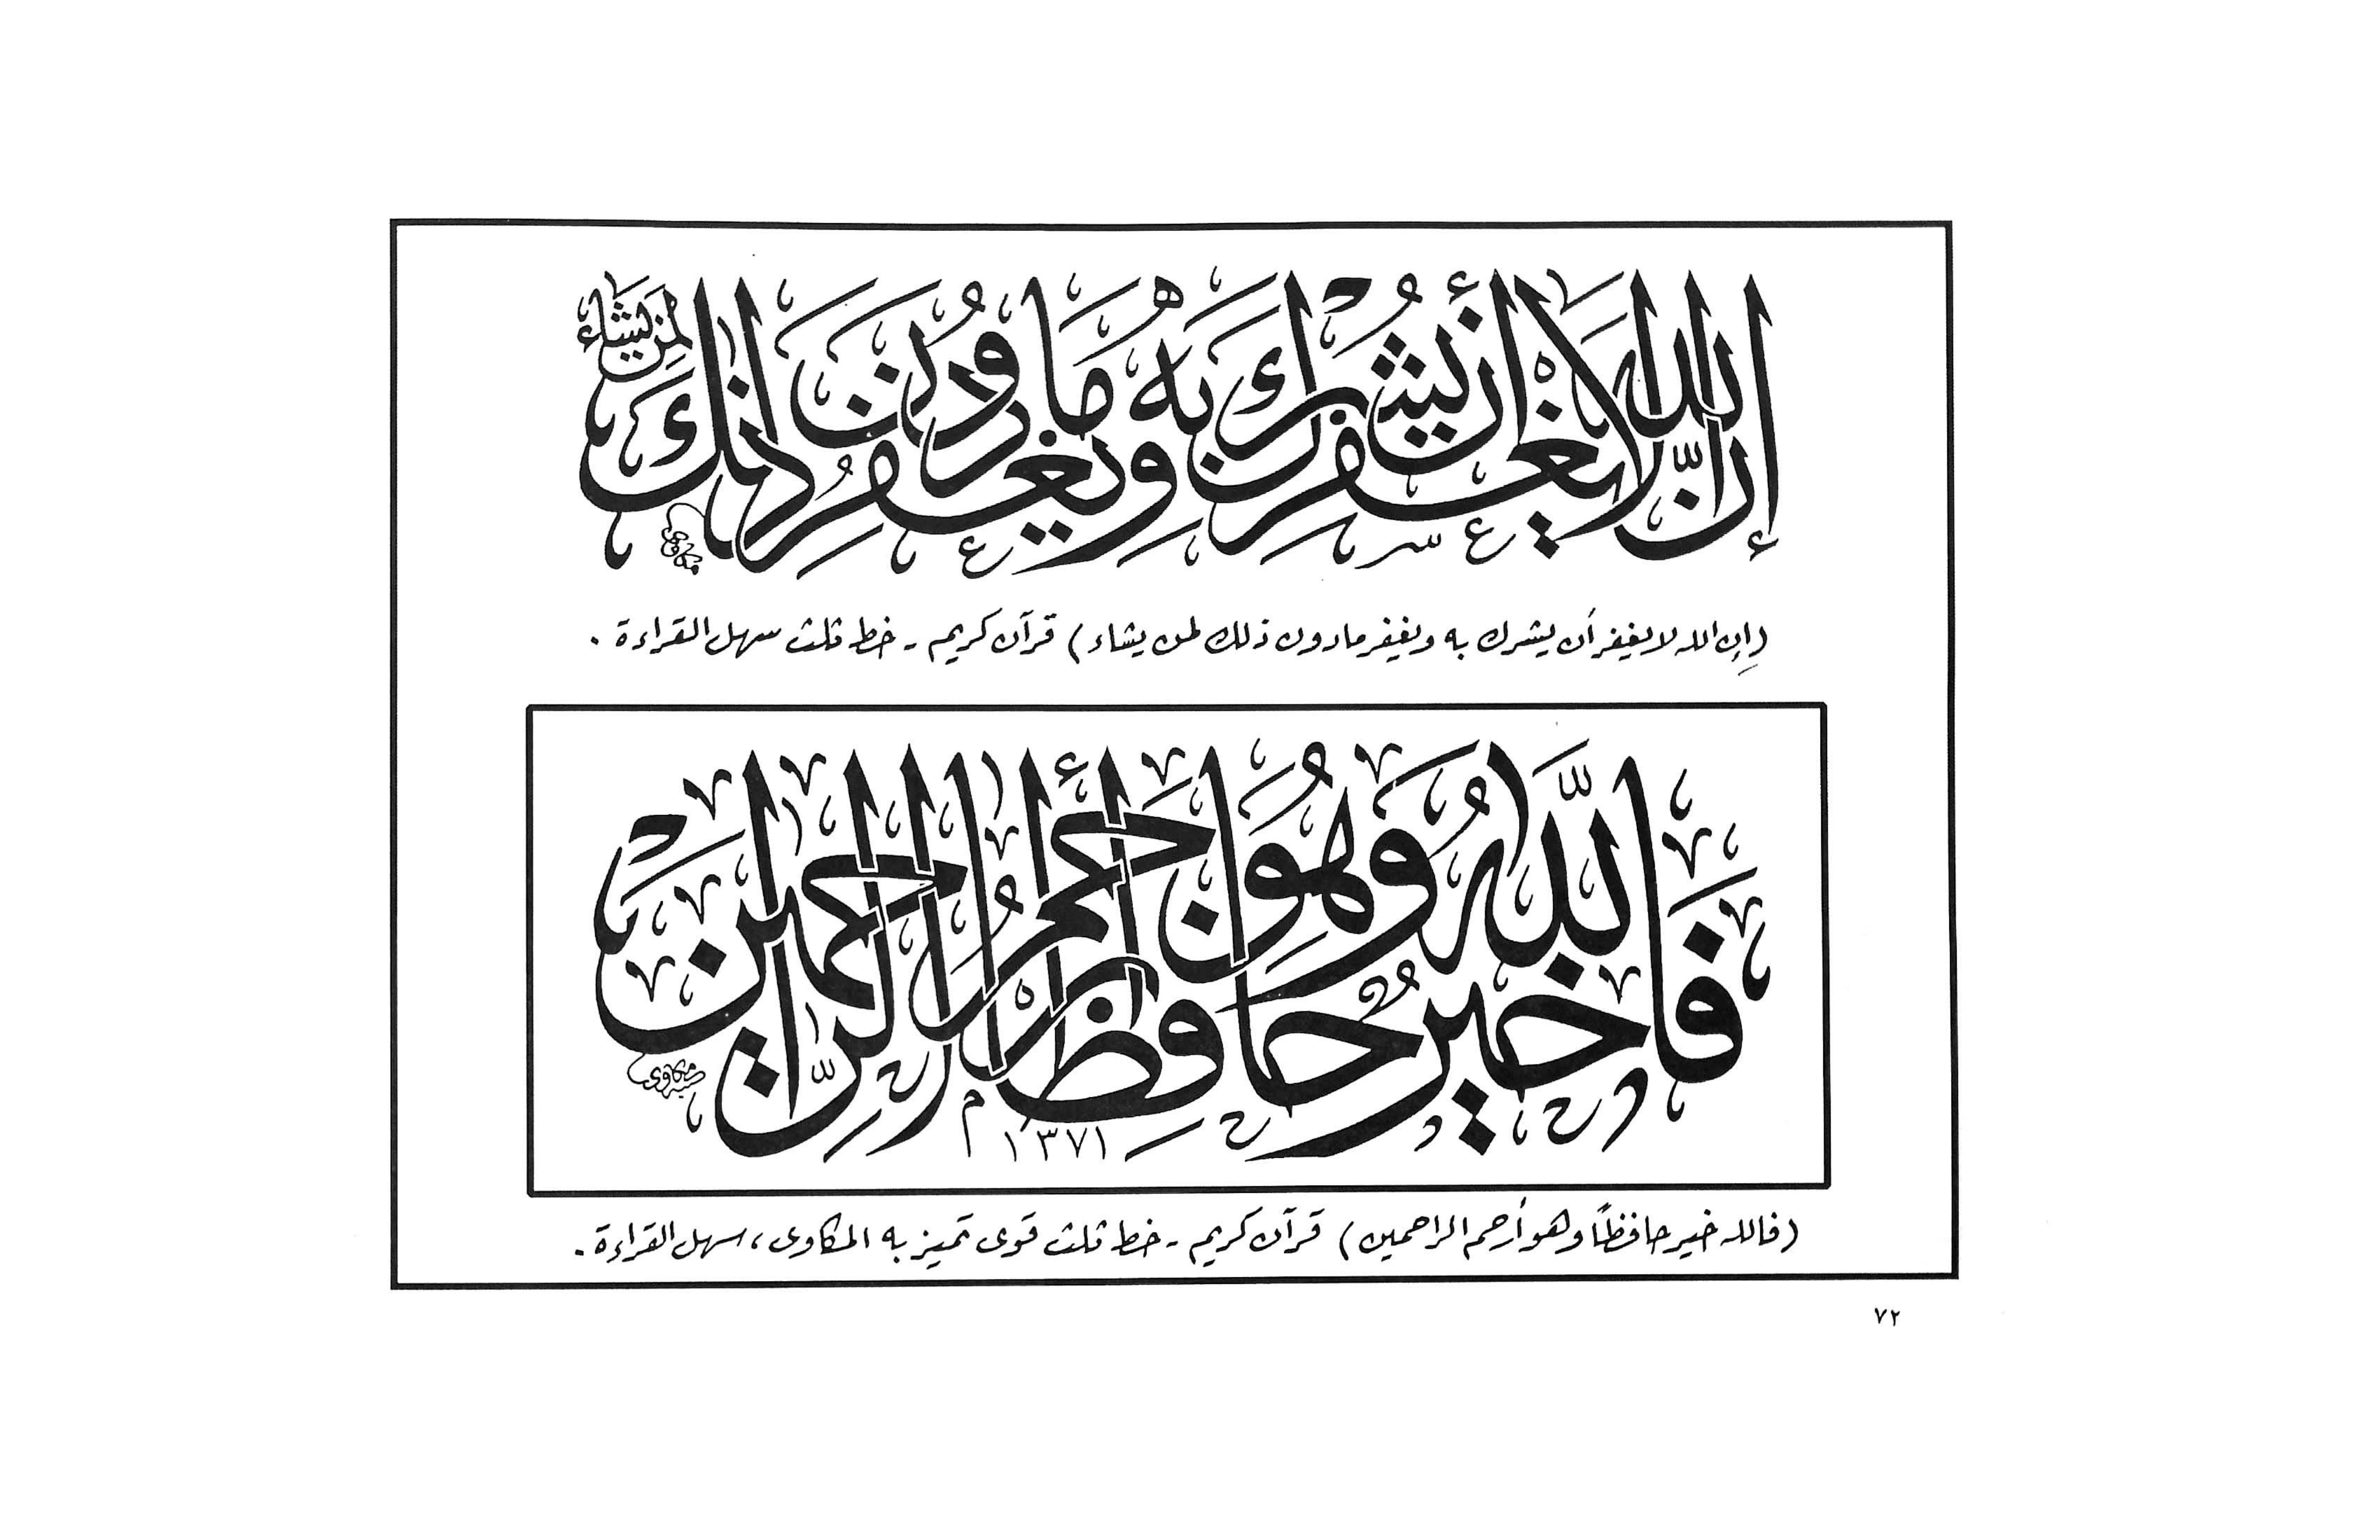 إن الله لا يغفر أن يشرك به ويغفر ما دون ذلك لمن يشاء
(إن الله لا يغفر أن يشرك به ويغفر ما دون ذلك لمن يشاء) قرآن كريم - خط ثلث سهل القراءة .
فالله خير حافظا وهو أرحم الراحمين
مكاوى
١٣٧١
(فالله خير حافظاً وهو أرحم الراحمين) قرآن كريم - خط ثلث قوى تميز به المكاوى، سهل القراءة .
٧٢